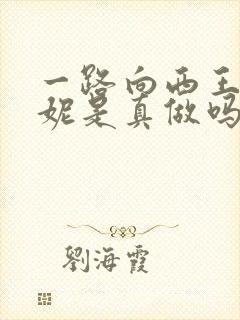 一路向西王
妮是真做吗
劉海霞